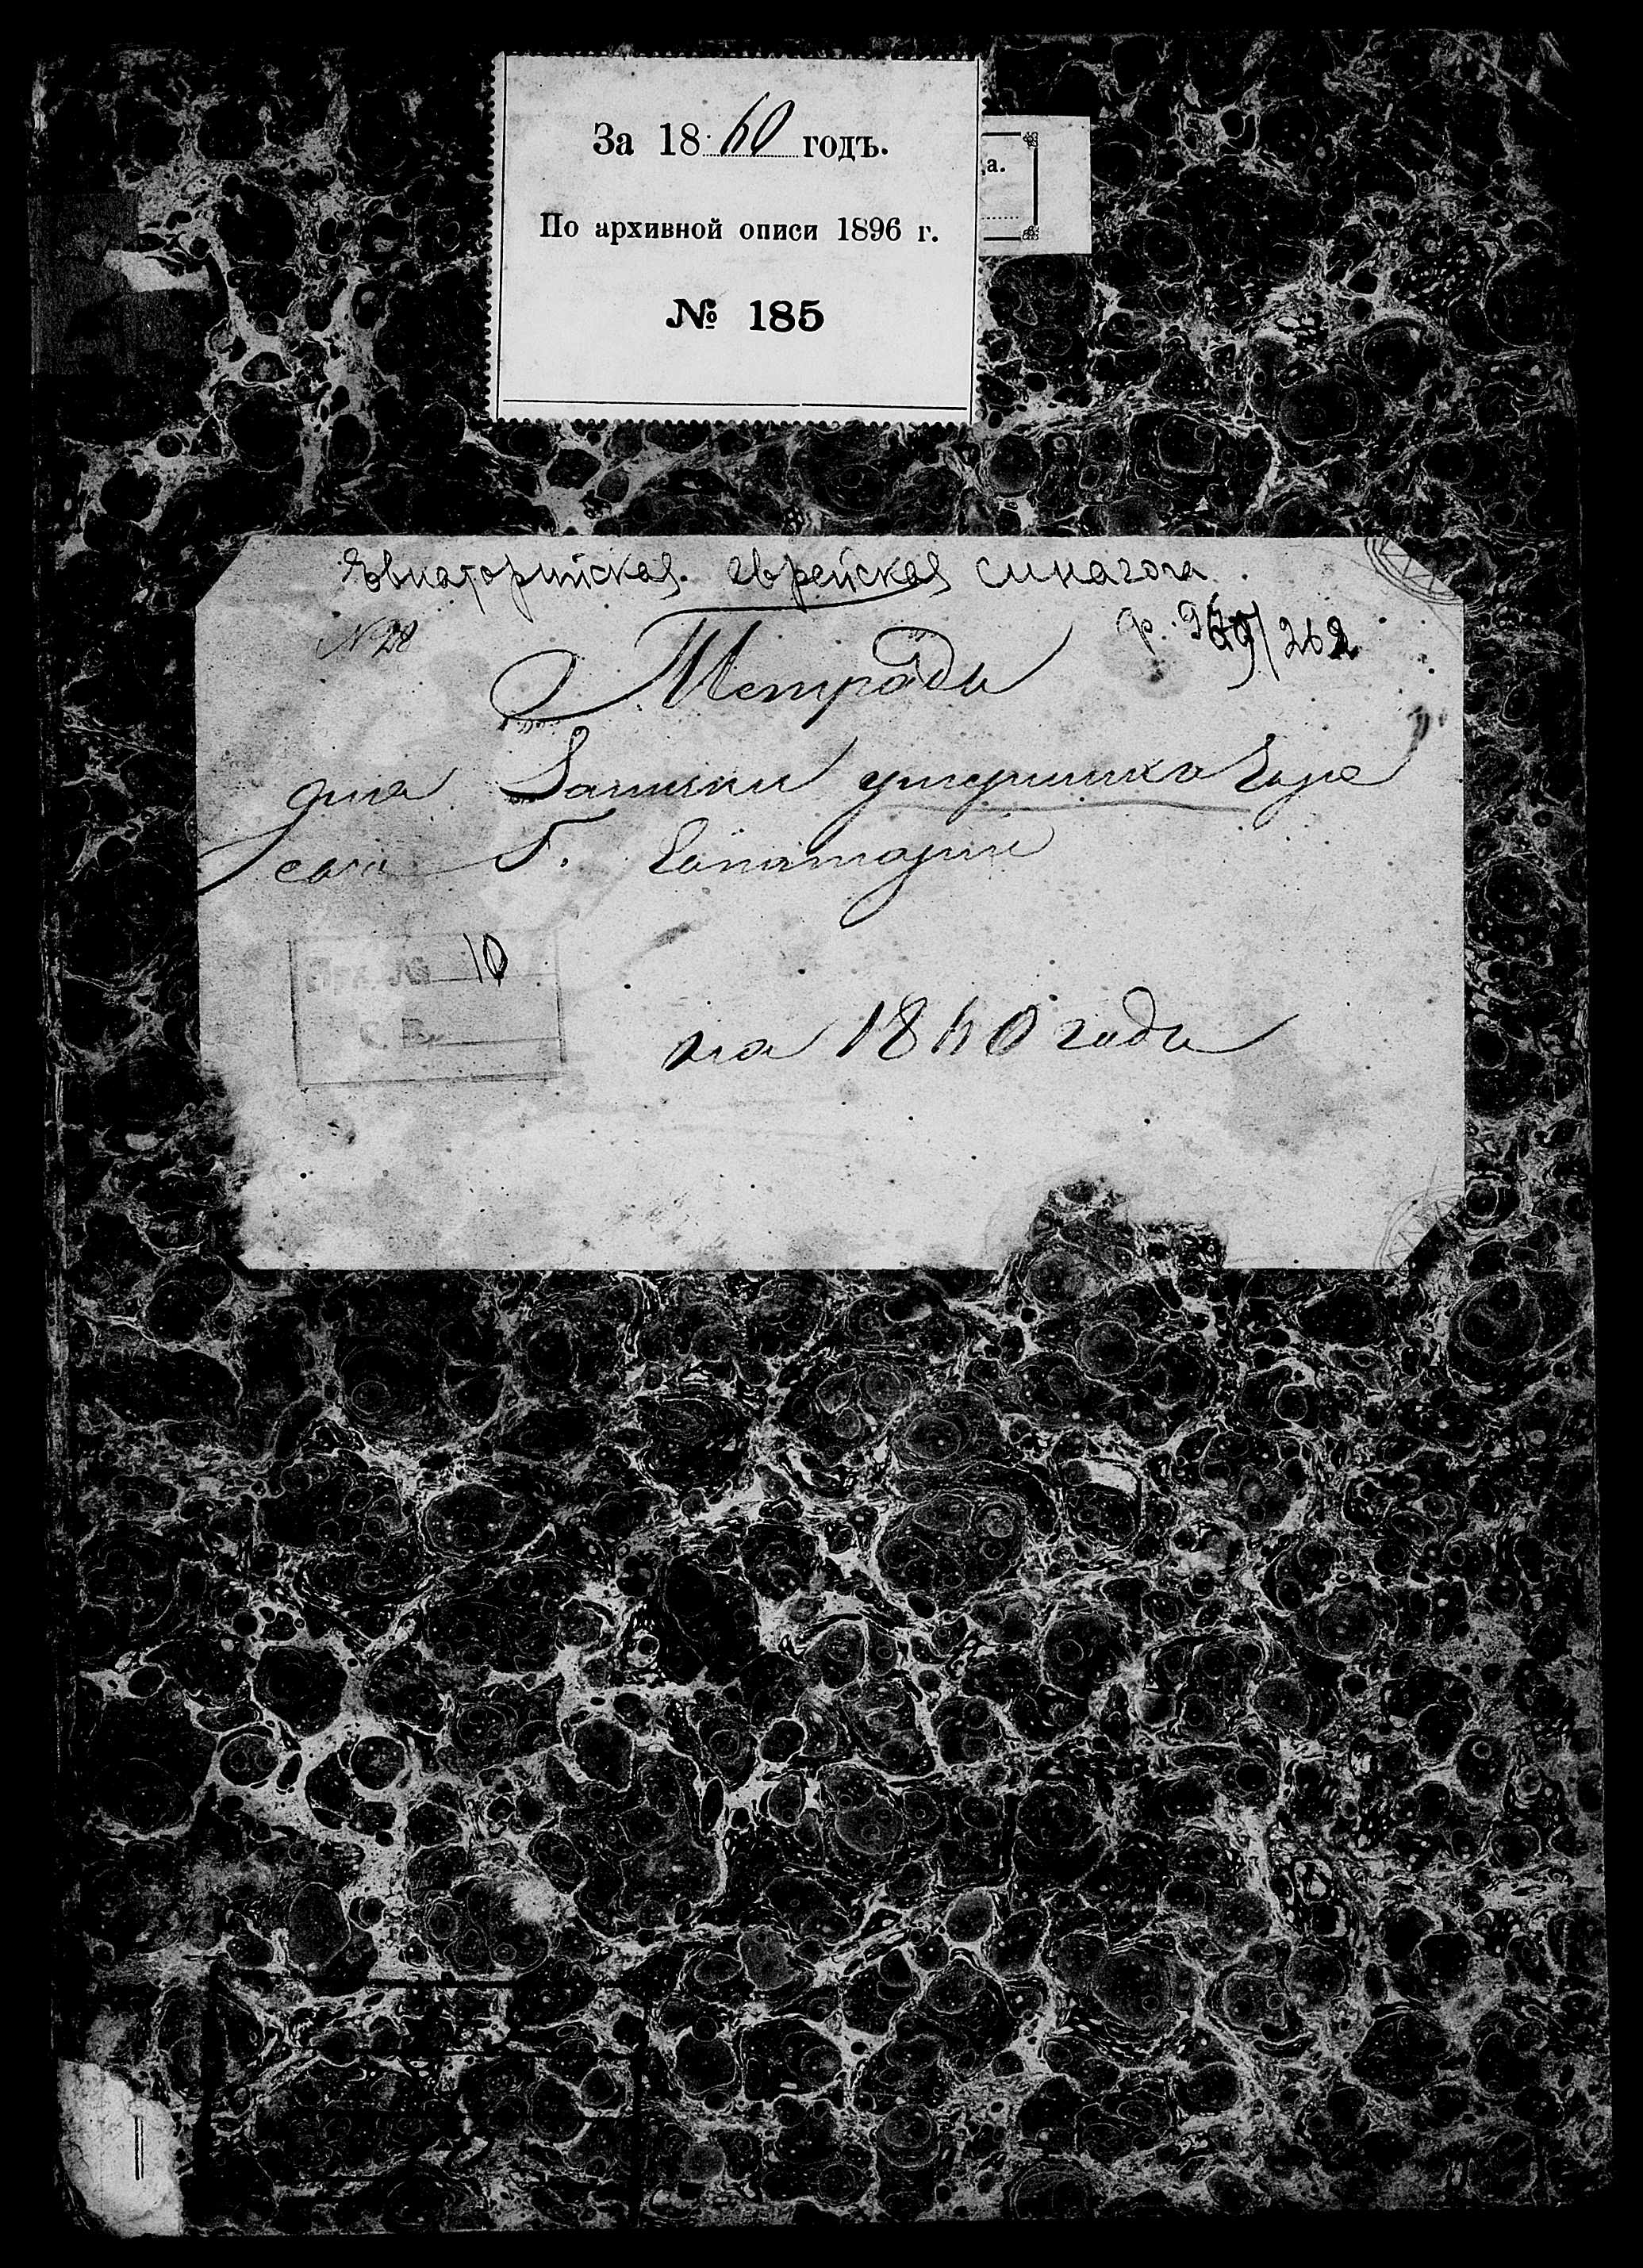 За 1860 годъ.
а.
По архивной описи 1896 г.
№ 185
Евпаторийская еврейская синагога
N 28
ф. 241/262
Тетрадь
для Записки умершихъ Евре
евъ Г. Евпаторіи
10
на 1860 годъ